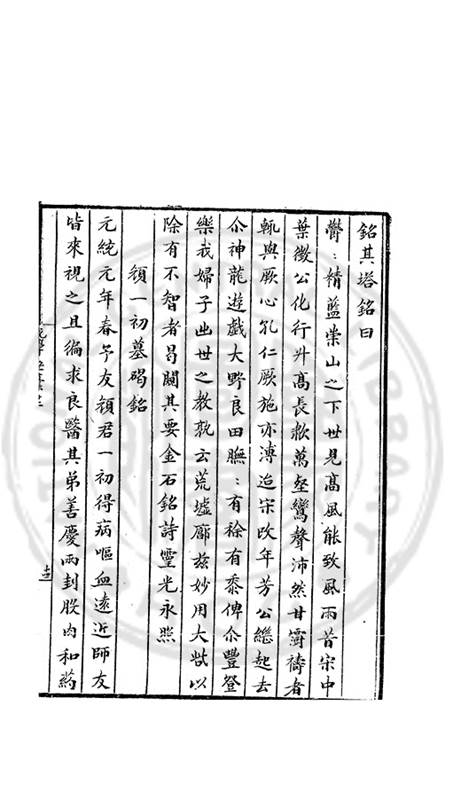 銘其塔銘曰
欝〻精藍崇山之下世見高風能致風雨昔宋中
葉徽公化行升髙長欶萬壑鸞聲沛然甘霔禱者
輒與厥心孔仁厥施亦溥迨宋改年芳公繼起去
尒神龍遊戲大野良田膴〻有稌有黍俾尒豐登
樂我婦子出世之教孰云荒墟廓兹妙用大㧗以
除有不智者曷闚其要金石銘詩靈光永照
頋一初墓碣銘
元統元年春予友頋君一初得病嘔血遠近師友
皆來視之且徧求良醫其弟善慶兩刲股肉和藥